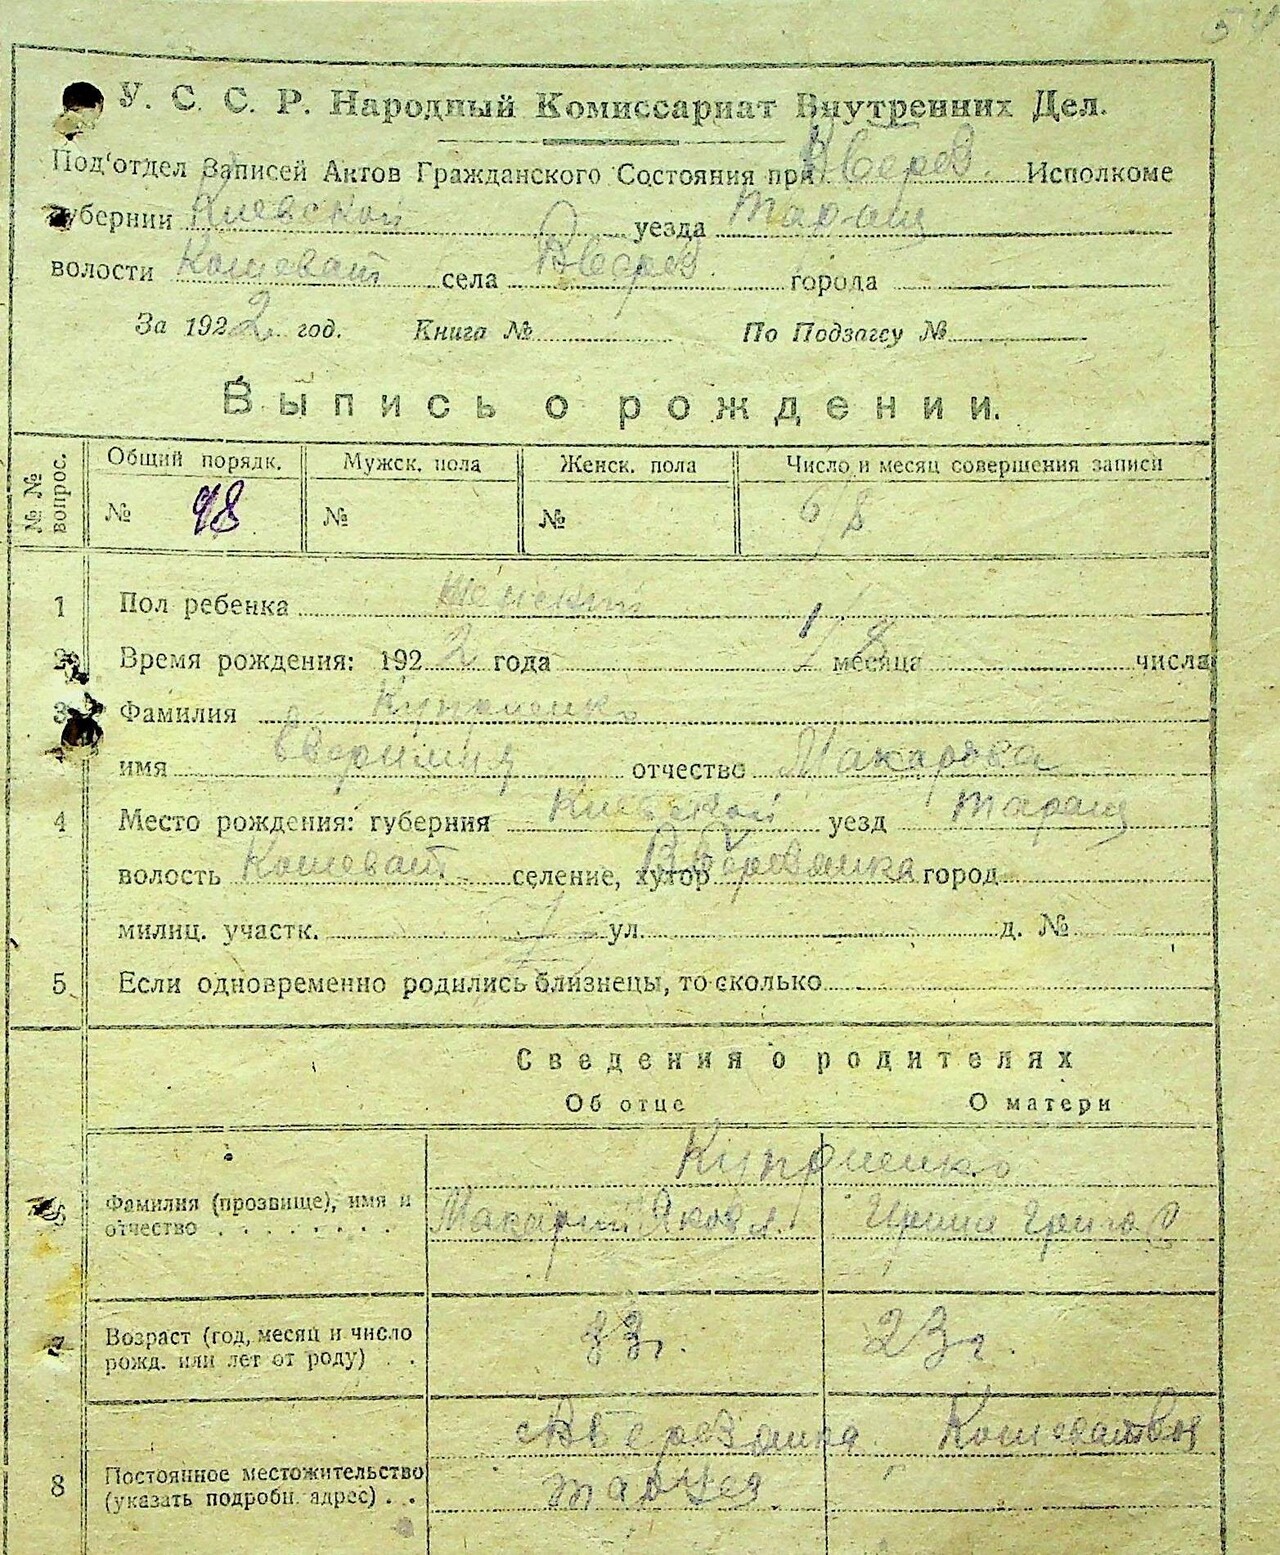 54
У. С. С. Р. Народный Комиссариат Внутренних Дел.
Под'отдел Записей Актов Гражданского Состояния при В Берез. Исполкоме
губернии Киевской уезда Таращ
волости Кошеват села В Берез. города
За 1922 год. Книга № По Подзагсу №
Выпись о рождении.
№ № вопрос. Общий порядк. Мужск. пола Женск. пола Число и месяц совершения записи
№ 98 № № 6/8
1 Пол ребенка женский
2 Время рождения: 1922 года 1/8 месяца числа
3 Фамилия Куприенко
имя отчество Макарова
4 Место рождения: губерния Киевской уезд Таращ
волость Кошеват селение, хутор В Березянка город
милиц. участк. ул. д. №
5 Если одновременно родились близнецы, то сколько
Сведения о родителях
Об отце О матери
Куприенко
6 Фамилия (прозвище), имя и
отчество Макарий Яковл. Ирина Григор
7 Возраст (год, месяц и число 33 г. 23 г.
рожд. или лет от роду)
Березянка Кошеватая
8 Постоянное местожительство
(указать подробн. адрес)